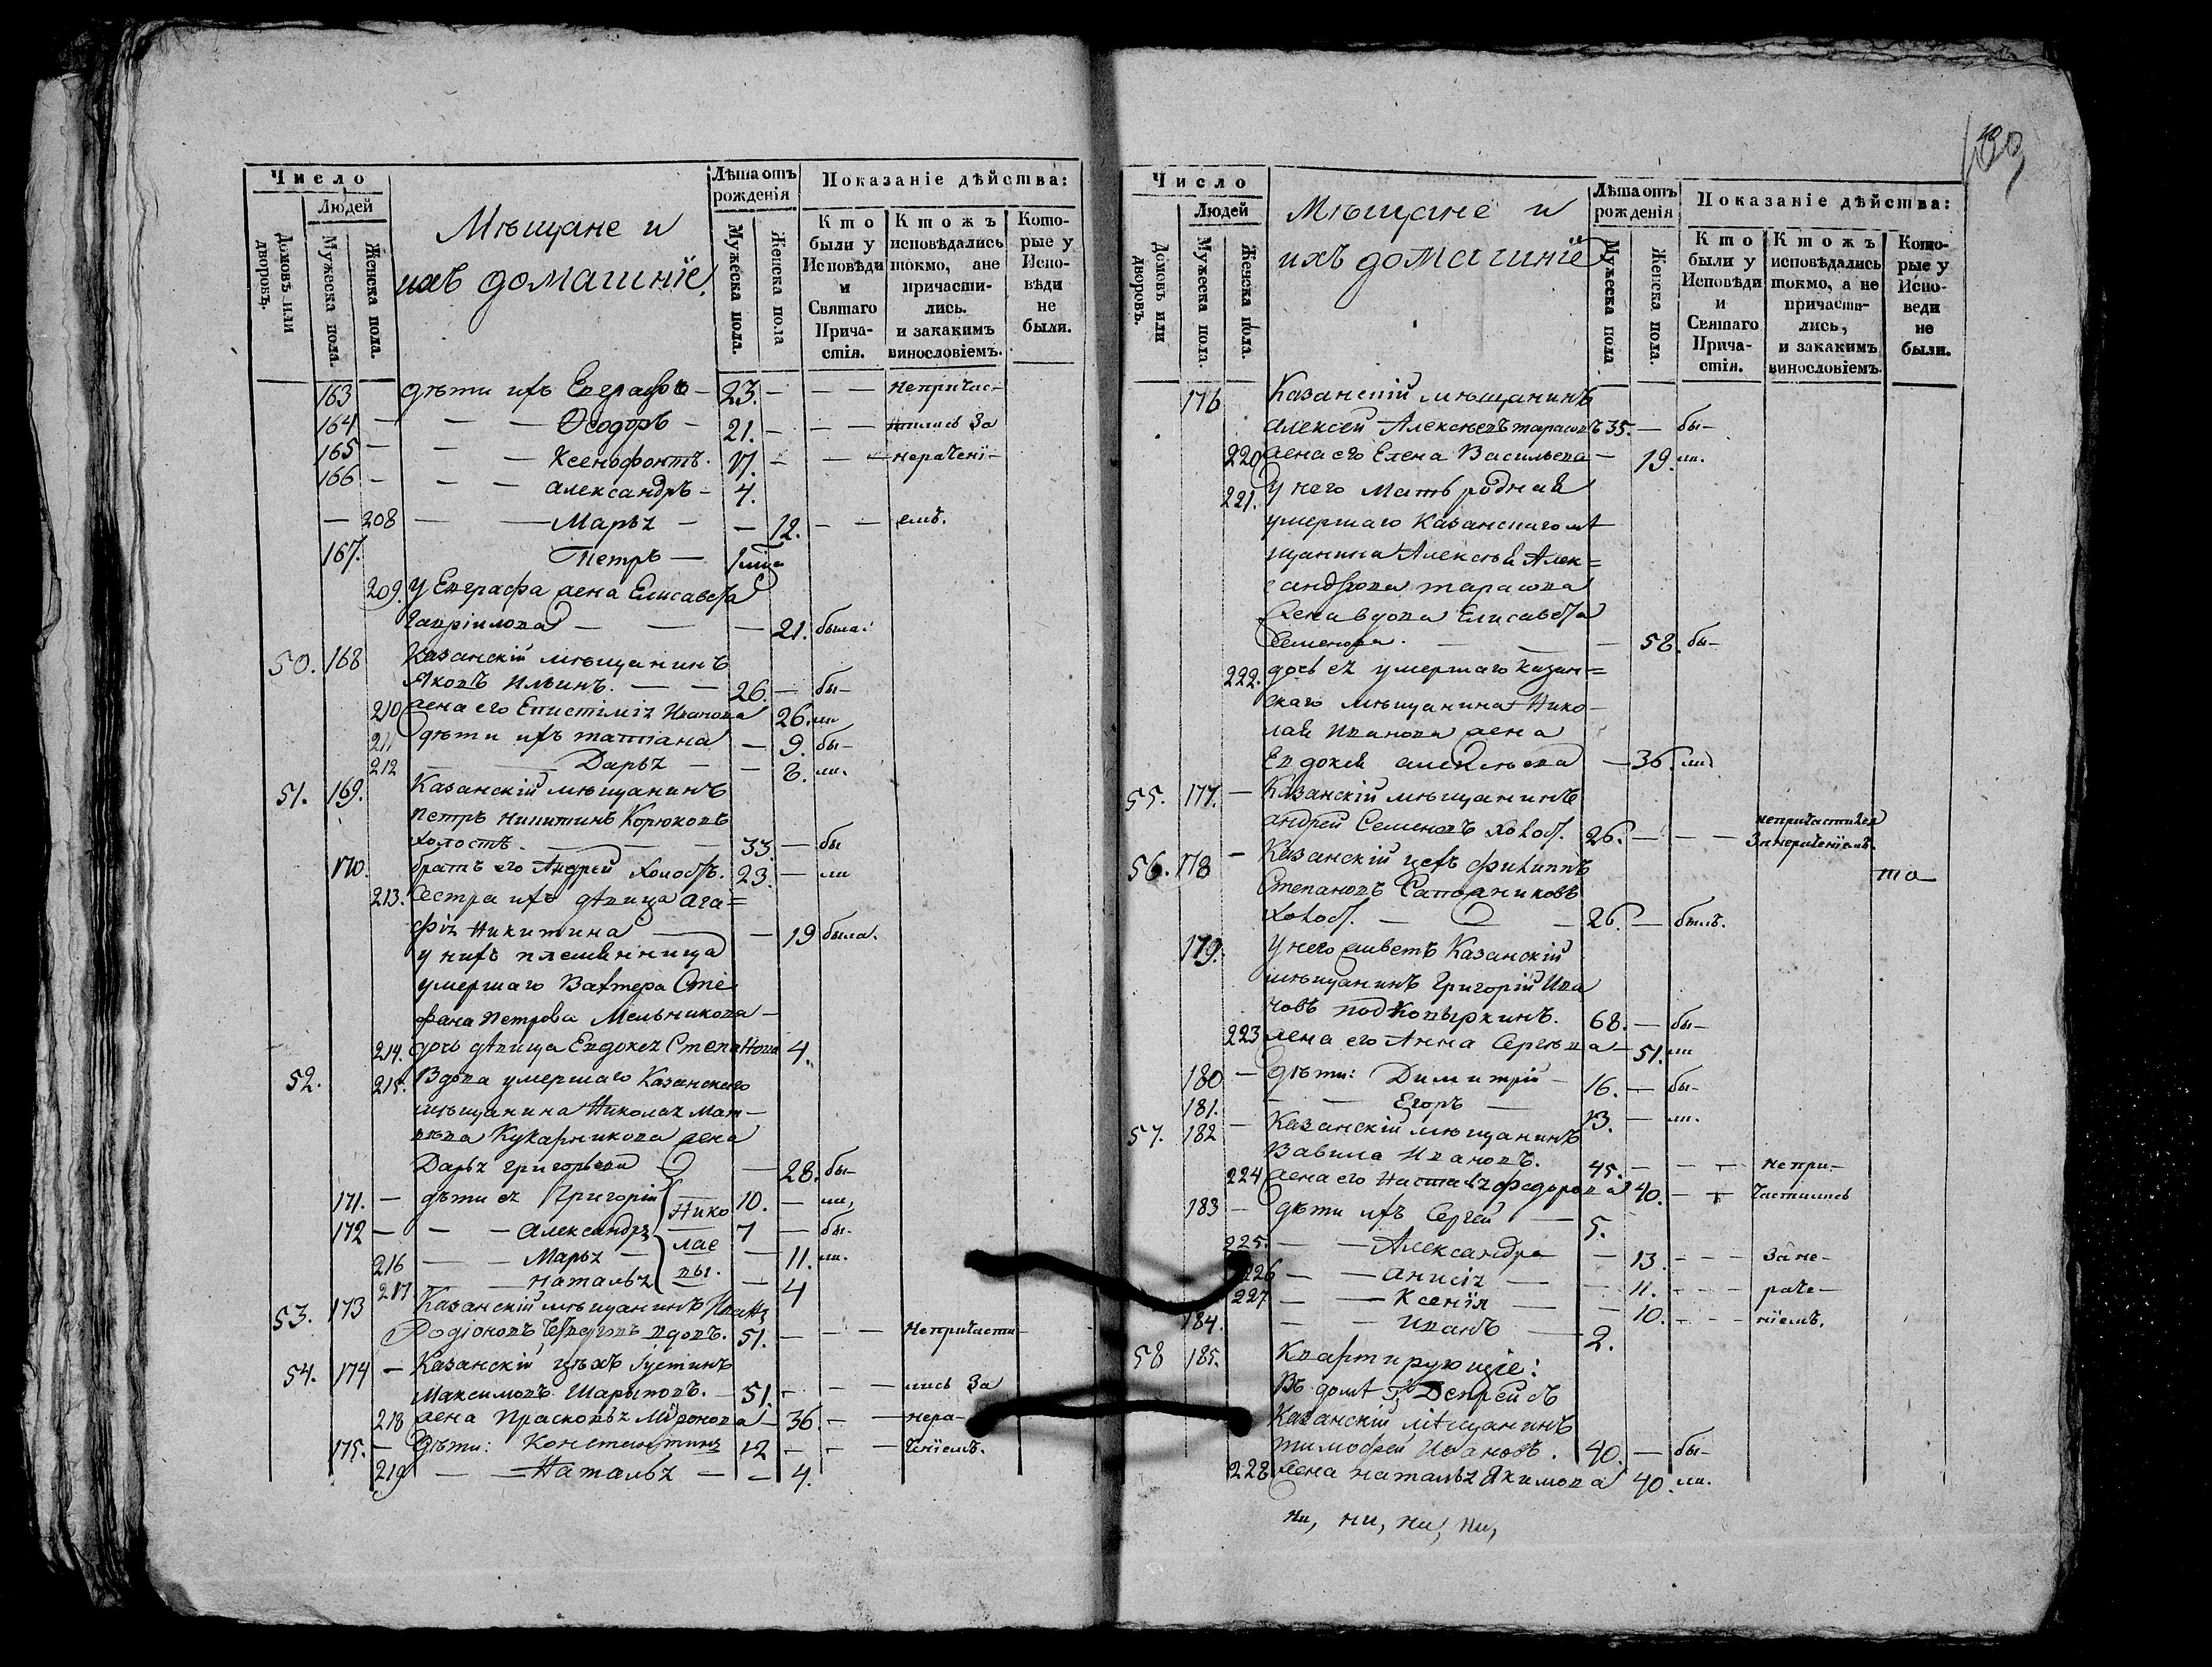 Число
Людей
Домовъ или дворовъ.
Мужеска пола.
Женска пола.
Мѣщане и
ихъ домашнїе
Лѣта отъ рожденія
Мужеска пола.
Женска пола
Показаніе дѣйства:
Кто были у Исповѣди и Святаго Причастія.
Ктожъ исповѣдались токмо, а не причастились. и закакимъ винословіемъ.
Которые у Исповѣди не были.
163 дѣти ихъ Евграфъ - 23. - - - непричас-
164 - - - Ѳеодоръ - 21. - - - тились за
165 - - - Ксенофонтъ. 17. - - - нерачені-
166 - - - Александръ - 4.
- 208 - - Марья - - 12. - - емъ.
167. Петръ -
209. У Евграфа жена Елисавета
Гавріилова - - - 21. была.
50. 168 Казанскій мѣщанинъ
Яковъ Ильинъ. - - 26. - бы-
210 жена его Епистимія Иванова 26. ли
211 дѣти ихъ Татіана - 9. бы-
212 - Дарья - - 8. ли.
51. 169. Казанскій мѣщанинъ
Петръ Никитинъ Корюковъ
холостъ. - - - 33. - бы
170. братъ его Андрей холостъ. 23. - ли
213. Сестра ихъ дѣвица Ага=
фія Никитина - - 19 была.
у нихъ племянница
умершаго Вахтера Сте
фана Петрова Мельникова -
214. дочь дѣвица Евдокея Степанова 4.
52. 215. Вдова умершаго Казанскаго
мѣщанина Николая Мат-
вѣва Кукарникова жена
Дарья Григорьева - 28. бы-
171. - дѣти ея Григорій Нико 10. - ли,
172 - - - Александръ - 7 - бы-
216 - - Марья - лае - 11. ли.
217 - - Наталья вы. - 4
53. 173 Казанскій мѣщанинъ Иванъ
Родіоновъ вдовъ. 51. - - - непричасти-
54. 174 - Казанскій цѣхъ Іустинъ
Максимовъ Шарыповъ. - 51. - - - лись за
218 жена Прасковья Миронова - 36. - - нера-
175. - дѣти: Константинъ 12 - - - ченіемъ.
219 - - Наталья - - 4.
Число
Людей
Домовъ или дворовъ.
Мужеска пола.
Женска пола.
Мѣщане и
ихъ домашнїе
Лѣта отъ рожденія
Мужеска пола
Женска пола.
Показаніе дѣйства:
Кто были у Исповѣди и Святаго Причастія.
Ктожъ исповѣдались токмо, а не причастились, и закакимъ винословіемъ.
Которые у Исповеди не были.
176 Казанскій мѣщанинъ
Алексей Алексѣевъ Тарасовъ 35. - бы-
220 жена его Елена Васильева - 19. ли.
221. У него мать родная
умершаго Казанскаго мѣ
щанина Алексѣя Алек=
сандрова Тарасова
жена вдова Елисавета
Семенова. - - 58. бы-
222. дочь ея умершаго Казан=
скаго мѣщанина Нико-
лая Иванова жена
Евдокея Алексѣева - 36. ли
55. 177. - Казанскій мѣщанинъ
Андрей Семеновъ холост. 26. - - - непричастился
за нераченіемъ.
56. 178 - Казанскій цехъ Филиппъ
Степановъ Сапожниковъ
холост. - - 26. - былъ.
179. У него живетъ Казанскій
мѣщанинъ Григорій Ива
новъ Подковыркинъ. 68. - бы-
223 жена его Анна Сергѣева - 51. ли
180 - дѣти: Димитрій - 16. - бы-
181. - - Егоръ - 13. - ли.
57. 182 - Казанскій мѣщанинъ
Вавила Ивановъ. 45. - - - непри-
224 жена его Настасья Федорова 40. - - частились
183 - дѣти ихъ Сергей - 5.
225. - - Александра - 13. - - - за не-
226 - - Анисія - - 11. - - - раче-
227 - - Ксенїя - - 10. - - - нїемъ.
184. - - Иванъ - 2.
58 185. Квартирующіе:
Въ домѣ
Казанскій мѣщанинъ
Тимофей Ивановъ. 40. - бы-
228 жена Наталья Якимова 40. ли.
ни, ни, ни, ни,